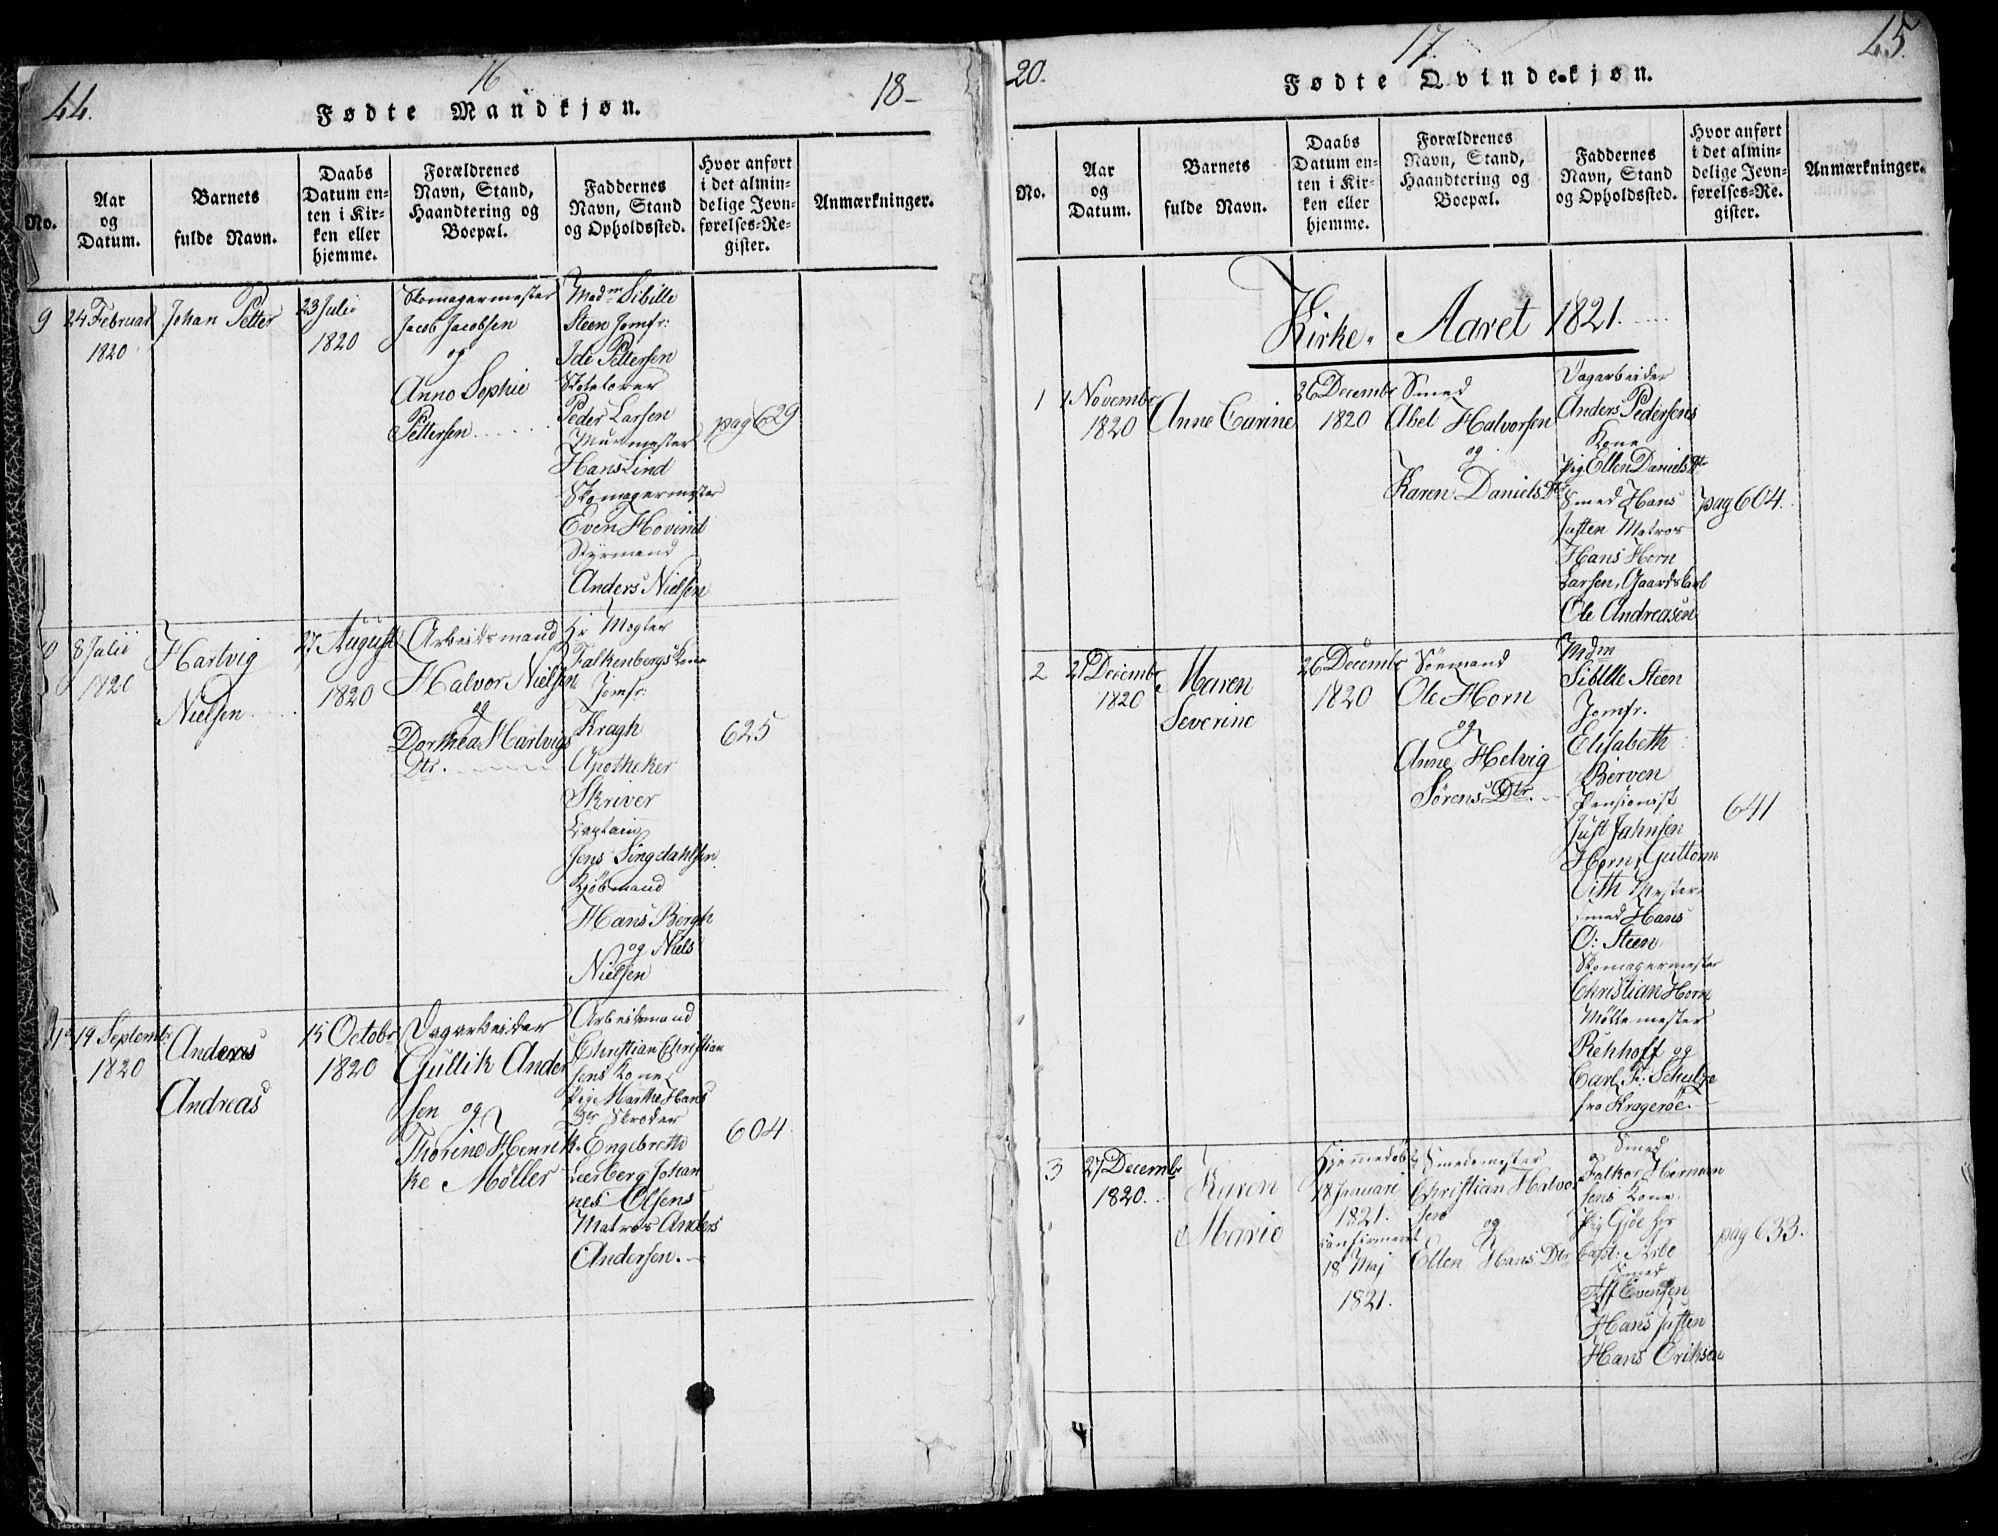 44.
16
18-
Fødte Mandkjøn.
No.
Aar
og
Datum.
Barnets
fulde Navn.
Daabs
Datum en-
ten i Kir-
ken eller
hjemme.
Forældrenes
Navn, Stand,
Haandtering og
Boepæl.
Faddernes
Navn, Stand
og Opholdssted.
Hvor anført
i det almin-
delige Jevn-
førelses-Re-
gister.
Anmærkninger.
9
24 Februar
1820
Johan Petter
23 Julii
1820
Skomagermester
Jacob Jacobsen
og
Anne Sophie
Pettersen
Madm Sibille
Steen Jomfr:
Ide Pettersen
Peder Larsen
Muurmester
Hans Lind
Skomagermester
Even Hovind
Styrmand
Anders Nielsen
pag 629
8 Julii
1820
Hartvig
Nielsen
27 August
1820
Arbeidsmand
Halvor Nielsen
og
Dorthea Hartvigs
Dtr.
Hr Mægler
Falkenbergs Kone
Jomfr:
Kragh
Apotheker
Skriver
Captain
Jens Singdahlsen
Kjøbmand
Hans Bergh
og Niels
Nielsen
625
19 Septembr
1820
Anders
Andreas
15 Octobr
1820
Dagarbeider
Gullik Ander
sen og
Thorine Henrik
ke Møller
Arbeidsmand
Christian Christian
sens Kone
Pige Marthe Hans
Dtr Skræder
Engebreth
Leerberg Johan
nes Olsens
Matros Anders
Andersen.
604
20.
17.
45.
Fødte Qvindekjøn.
No.
Aar
og
Datum.
Barnets
fulde Navn.
Daabs
Datum en-
ten i Kir-
ken eller
hjemme.
Forældrenes
Navn, Stand,
Haandtering og
Boepæl.
Faddernes
Navn, Stand
og Opholdssted.
Hvor anført
i det almin-
delige Jevn-
førelses-Re-
gister.
Anmærkninger.
Kirke-Aaret 1821.
1
1 Novembr
1820
Anne Carine
26 Decembr
1820
Smed
Abel Halvorsen
og
Karen Daniels Dtr
Dagarbeider
Anders Pedersens
Kone
Pig Ellen Daniels Dtr
Smed Hans
Justen Matros
Hans Horn
Larsen, Gaardskarl
Ole Andreasen
pag 604.
2
21 Decembr
1820
Maren
Severine
26 Decembr
1820
Søemand
Ole Horn
og
Anne Helvig
Sørens Dtr.
Mdm
Sibille Steen
Jomfr.
Elisabeth
Berven
Pensionist
Just Jahnsen
Horn, Guttorm
With Mester-
smed Hans
O: Steen
Skomagermester
Christian Horn
Møllemester
Rehhoff og
Carl F: Schultze
fra Kragerøe.
641
3
27 Decembr
1820.
Karen
Marie
Hjemmedøbt
18 Januari
1821.
confirmeret
18 Maj
1821.
Smedemester
Christian Halvor
sen
og
Ellen Hans Dtr
Smed
Falkor Herman
sens Kone
Pig Gjøe hos
Capt:
Smed
Evensen
Hans Justen
Hans Eriksen
pag 633.